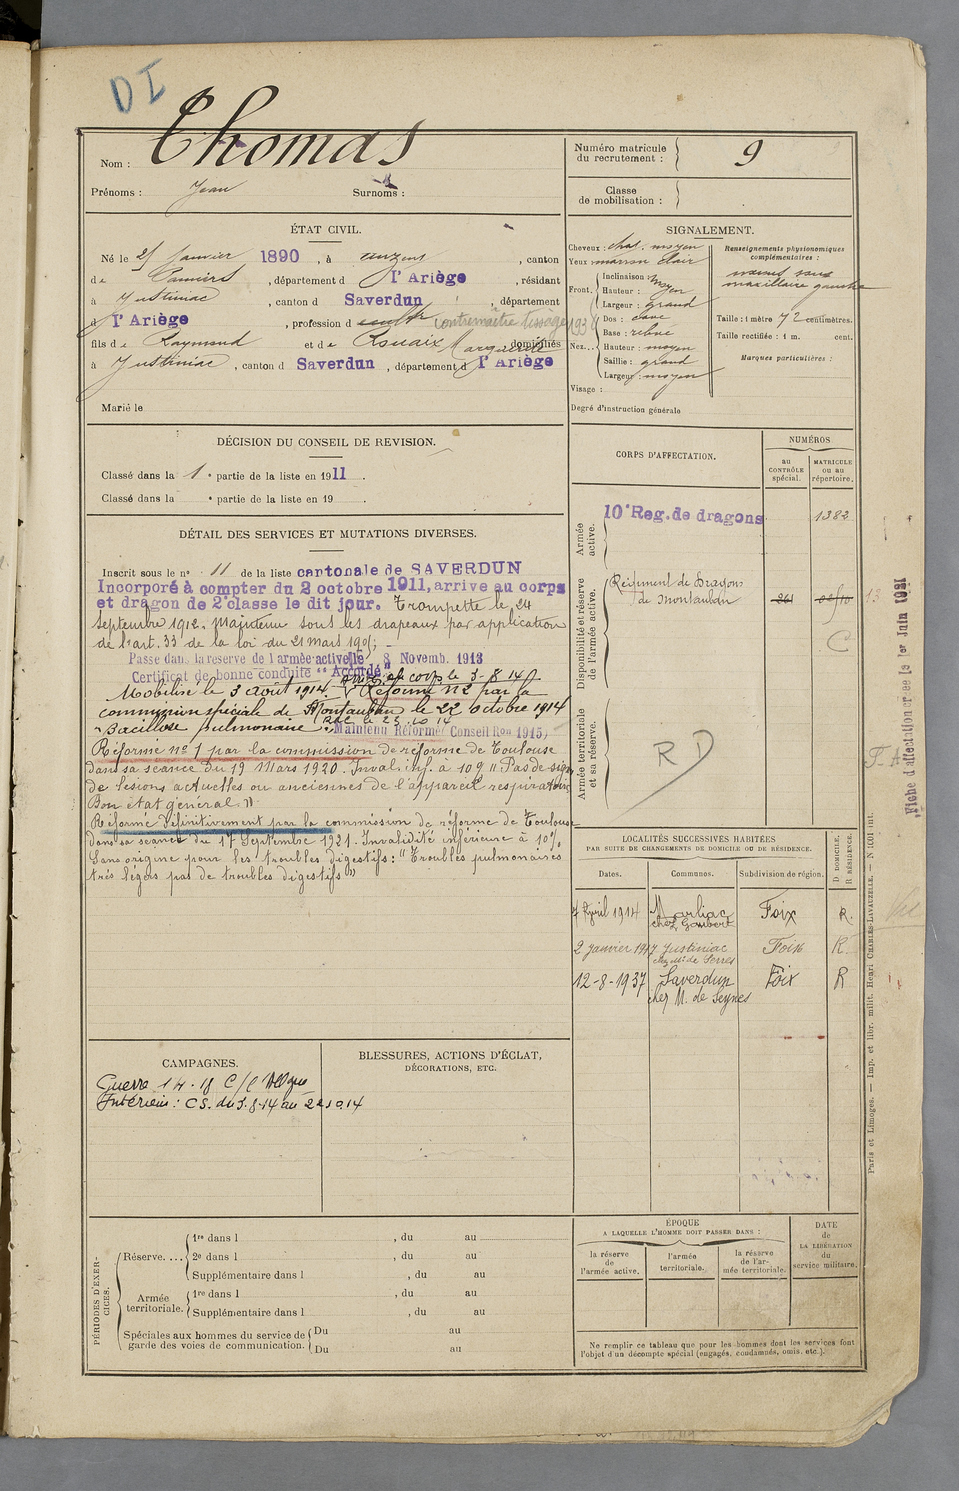 DI
Nom : Thomas
Prénoms : Jean Surnoms :
Numéro matricule du recrutement : 9
Classe de mobilisation :
ÉTAT CIVIL.
Né le 25 Janvier 1890, à , canton
de Pamiers, département d l'Ariège, résidant
à Justiniac, canton d Saverdun, département
d l'Ariège, profession d contremaître tissage 193
fils de Raymond et de Rouaix Marguerite domiciliés
à Justiniac, canton d Saverdun, département d l'Ariège
Marié le
SIGNALEMENT.
Cheveux : chat. moyen
Yeux marron clair
Front. Inclinaison : moyen
Hauteur : moyen
Largeur : grand
Nez... Dos : cave
Base : relevé
Hauteur : moyen
Saillie : grand
Largeur : moyen
Visage :
Degré d'instruction générale
Renseignements physionomiques complémentaires :
naevus sous
maxillaire gauche
Taille : 1 mètre 72 centimètres.
Taille rectifiée : 1 m. cent.
Marques particulières :
DÉCISION DU CONSEIL DE REVISION.
Classé dans la 1e partie de la liste en 1911.
Classé dans la e partie de la liste en 19 .
DÉTAIL DES SERVICES ET MUTATIONS DIVERSES.
Inscrit sous le no 11 de la liste cantonale de SAVERDUN
Incorporé à compter du 2 octobre 1911, arrive au corps
et dragon de 2e classe le dit jour. Trompette le 24
Septembre 1912. Maintenu sous les drapeaux par application
de l'art. 33 de la loi du 21 mars 1905. -
Passe dans la reserve de l'armée active le 8 Novemb. 1913
Certificat de bonne conduite "Accordé"
Mobilisé le 3 août 1914. Arrivé au corps le 3-8-14. Réformé n°2 par la
commission spéciale de Montauban le 22 Octobre 1914
"Bacillose pulmonaire" RDC le 23.10.14 Maintenu Réformé Conseil Ron 1915,
Réformé no 1 par la commission de réforme de Toulouse
dans sa séance du 19 Mars 1920. Inval. inf. à 10% "Pas de signe
de lésions actuelles ou anciennes de l'appareil respiratoire
Bon état général."
Réformé définitivement par la commission de réforme de Toulouse
dans sa séance du 17 Septembre 1921. Invalidité inférieure à 10%
Sans origine pour les troubles digestifs : "Troubles pulmonaires
très légers pas de troubles digestifs"
CORPS D'AFFECTATION.
NUMÉROS
au CONTRÔLE spécial.
MATRICULE ou au répertoire.
Armée active.
10e Reg. de dragons 1382
Disponibilité et réserve de l'armée active.
Régiment de Dragons
de Montauban 261
C
Armée territoriale et sa réserve.
RD
LOCALITÉS SUCCESSIVES HABITÉES
PAR SUITE DE CHANGEMENTS DE DOMICILE OU DE RÉSIDENCE.
Dates. Communes. Subdivision de région. D. DOMICILE. R. RÉSIDENCE.
7 Avril 1914 Marliac Foix R.
chez Goubert
2 janvier 1917 Justiniac Foix R.
chez Mr de Serres
12-8-1937 Saverdun Foix R
chez M. de Seynes
CAMPAGNES.
Guerre 14-18 C/C Allgne
Intérieur : CS. du 3.8.14 au 22.10.14
BLESSURES, ACTIONS D'ÉCLAT,
DÉCORATIONS, ETC.
PÉRIODES D'EXERCICES.
Réserve.... 1re dans l , du au
2e dans l , du au
Supplémentaire dans l , du au
Armée territoriale. 1re dans l , du au
Supplémentaire dans l , du au
Spéciales aux hommes du service de garde des voies de communication. Du au
Du au
ÉPOQUE
A LAQUELLE L'HOMME DOIT PASSER DANS :
la réserve de l'armée active.
l'armée territoriale.
la réserve de l'armée territoriale.
DATE de LA LIBÉRATION du service militaire.
Ne remplir ce tableau que pour les hommes dont les services font
l'objet d'un décompte spécial (engagés, condamnés, omis, etc.).
Paris et Limoges. — Imp. et libr. milit. Henri CHARLES-LAVAUZELLE. — N 1001 int.
Fiche d'affectation créée le 1er Juin 1931